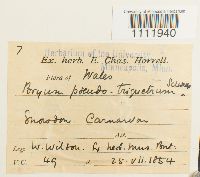 University of Minnesota
1111940
7
Herbarium of the University
Minneapolis, Minn.
Ex. herb. E. Chas. Horrell.
Flora of Wales
Bryum pseudo-triquetrum Schwaeg
Snowdon Carnarvon
Alt.
Leg. W. Wilson. Ex herb. Mus. Brit.
V.C. 49 25.VII.1854